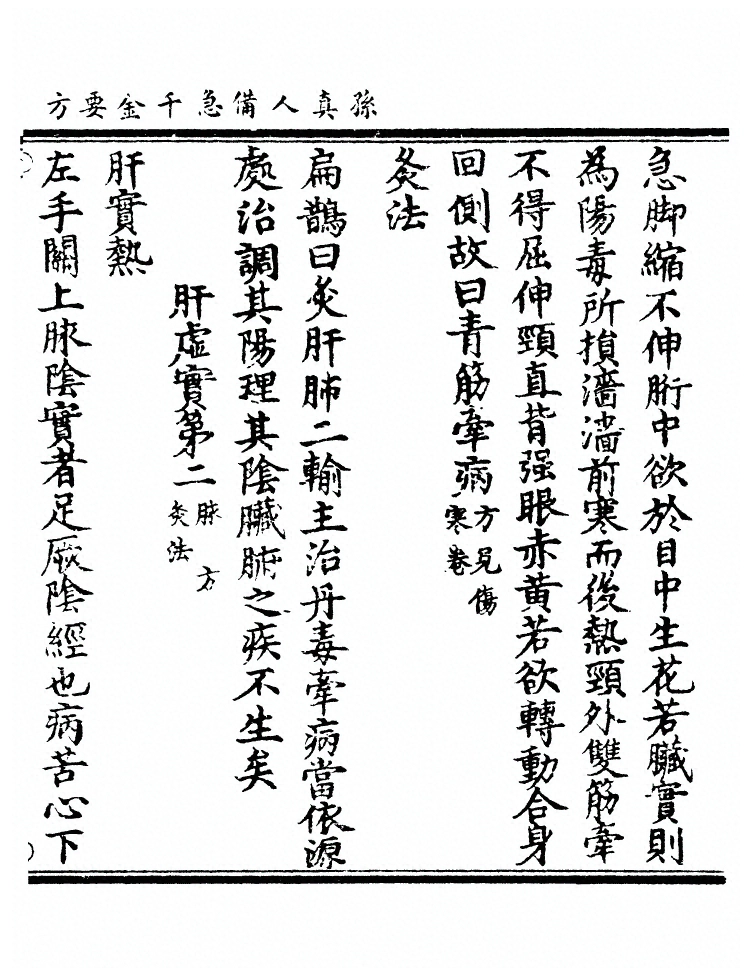 孫真人備急千金要方
急脚縮不伸䏶中欲於目中生花若臟實則
為陽毒所損濇濇前寒而後熱頸外雙筋牽
不得屈伸頸直背强眼赤黄若欲轉動合身
回側故曰青筋牽病方見傷寒卷
灸法
扁鵲曰灸肝肺二輸主治丹毒牽病當依源
處治調其陽理其陰臟腑之疾不生矣
肝虛實第二脉方灸法
肝實熱
左手關上脉陰實者足厥陰經也病苦心下